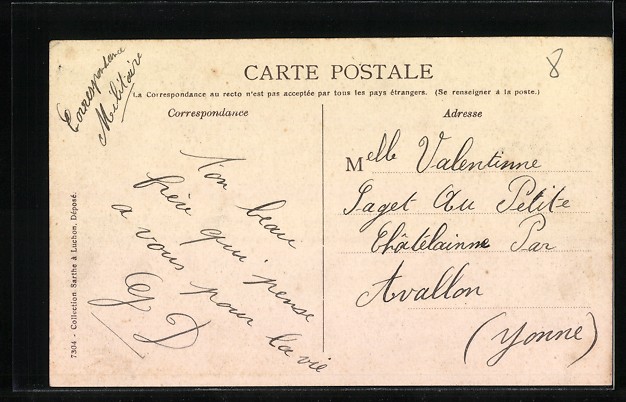 Correspondance
Militaire
8
CARTE POSTALE
La Correspondance au recto n'est pas acceptée par tous les pays étrangers. (Se renseigner à la poste.)
Correspondance
Ton beau
frère qui pense
a vous pour la vie
G D
Adresse
Melle Valentinne
Saget Au Petite
Châtelainne Par
Avallon
(Yonne)
7304 - Collection Sarthe à Luchon, Déposé.